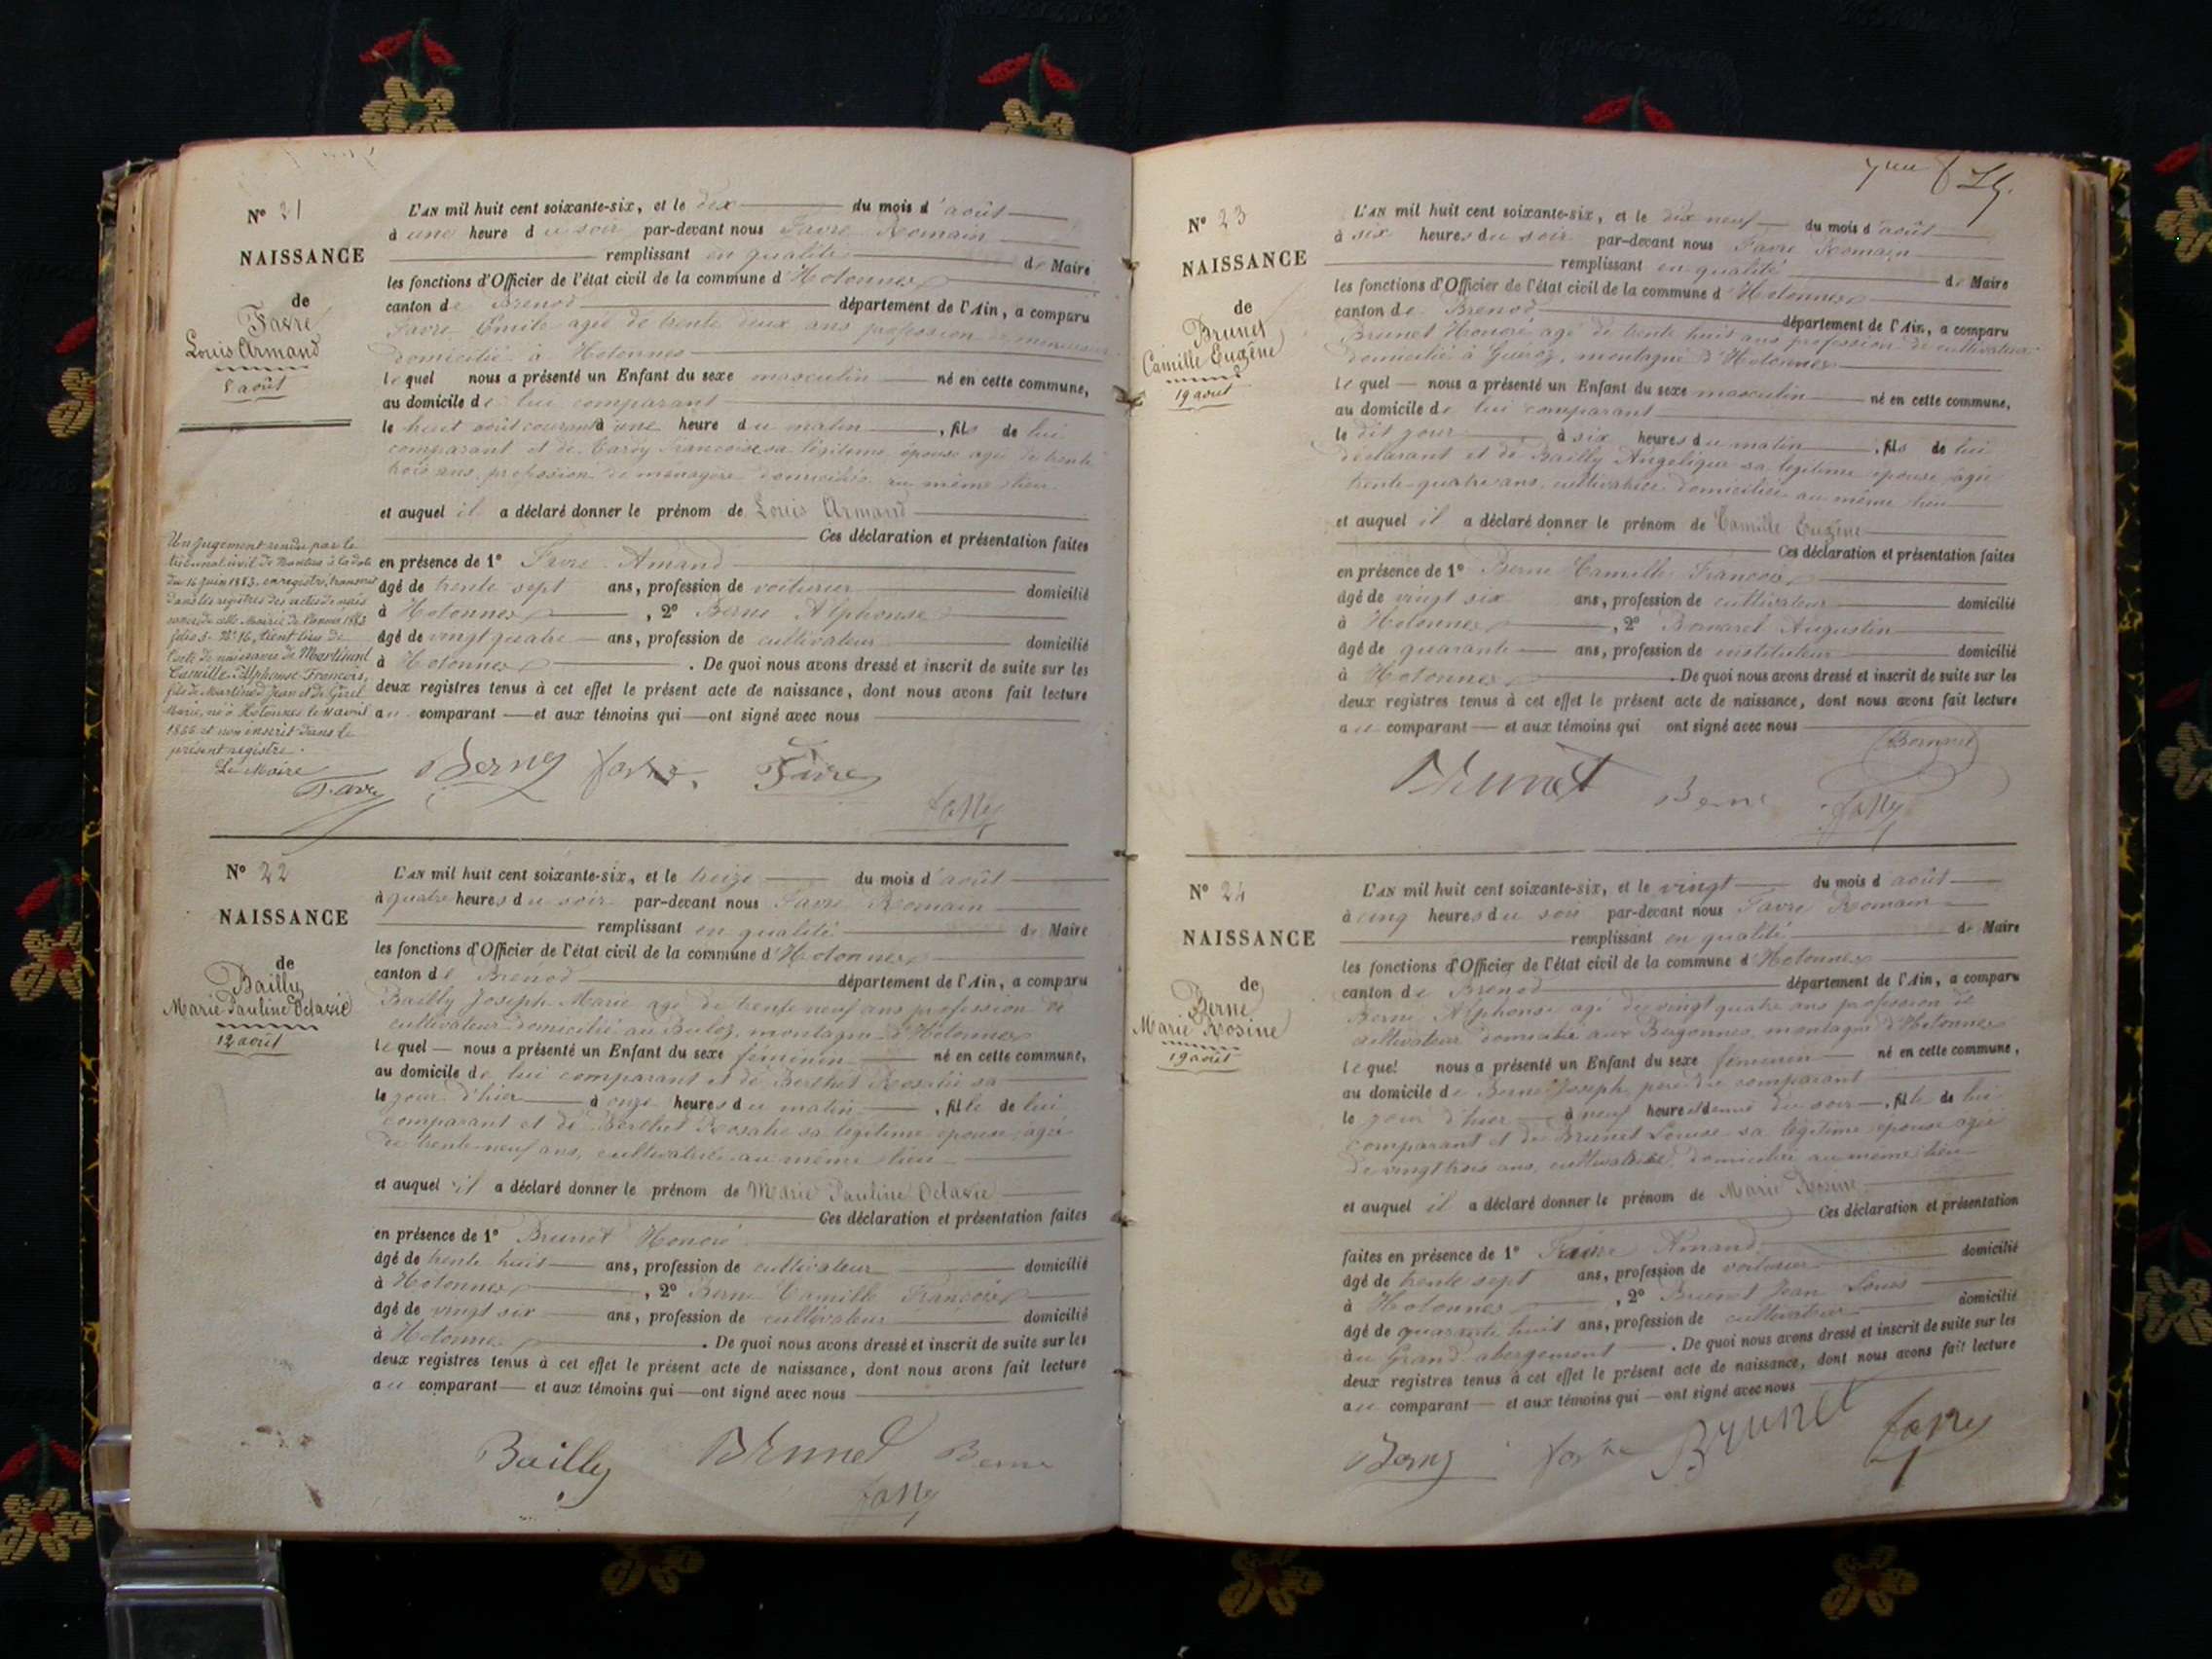 N° 21
NAISSANCE
de
Favre
Louis Armand
8 août
L'AN mil huit cent soixante-six, et le dix du mois d'août
à une heure du soir par-devant nous Favre Romain
remplissant en qualité de Maire
les fonctions d'Officier de l'état civil de la commune d'Hotonnes
canton de Brenod département de l'Ain, a comparu
Favre Emile agé de trente deux ans profession de menuisier
domicilié à Hotonnes
lequel nous a présenté un Enfant du sexe masculin né en cette commune,
au domicile de lui comparant
le huit août courant à une heure du matin, fils de lui
comparant et de Françoise sa légitime épouse agée de trente
trois ans, profession de ménagère domiciliée au même lieu
et auquel il a déclaré donner le prénom de Louis Armand
Ces déclaration et présentation faites
en présence de 1° Favre Amand
âgé de trente sept ans, profession de voiturier domicilié
à Hotonnes, 2° Berne Alphonse
âgé de vingt quatre ans, profession de cultivateur domicilié
à Hotonnes. De quoi nous avons dressé et inscrit de suite sur les
deux registres tenus à cet effet le présent acte de naissance, dont nous avons fait lecture
au comparant et aux témoins qui ont signé avec nous
Un jugement rendu par le
tribunal civil de Nantua à la date
du 16 juin 1883, enregistré, transcrit
dans les registres des actes de nais
sance de cette Mairie de l'année 1883
folio 5 N° 16, tient lieu de
l'acte de naissance de Martinod
Camille Alphonse François,
fils de Martinod Jean et de Girel
Marie, né à Hotonnes le 11 avril
1866 et non inscrit dans le
présent registre.
Le Maire
Favre
Berne Favre Favre
Favre
N° 22
NAISSANCE
de
Bailly
Marie Pauline Octavie
12 août
L'AN mil huit cent soixante-six, et le treize du mois d'août
à quatre heures du soir par-devant nous Favre Romain
remplissant en qualité de Maire
les fonctions d'Officier de l'état civil de la commune d'Hotonnes
canton de Brenod département de l'Ain, a comparu
Bailly Joseph Marie agé de trente neuf ans profession de
cultivateur domicilié au montagne d'Hotonnes
lequel nous a présenté un Enfant du sexe féminin né en cette commune,
au domicile de lui comparant et de Berthet Rosalie sa
le jour d'hier à onze heures du matin, fille de lui
comparant et de Berthet Rosalie sa légitime épouse, agée
de trente neuf ans, cultivatrice au même lieu
et auquel il a déclaré donner le prénom de Marie Pauline Octavie
Ces déclaration et présentation faites
en présence de 1° Brunet Honoré
âgé de trente huit ans, profession de cultivateur domicilié
à Hotonnes, 2° Berne Camille François
âgé de vingt six ans, profession de cultivateur domicilié
à Hotonnes. De quoi nous avons dressé et inscrit de suite sur les
deux registres tenus à cet effet le présent acte de naissance, dont nous avons fait lecture
au comparant et aux témoins qui ont signé avec nous
Bailly Brunet Berne
Favre
N° 23
NAISSANCE
de
Brunet
Camille Eugène
19 août
L'AN mil huit cent soixante-six, et le dix neuf du mois d'août
à six heures du soir par-devant nous Favre Romain
remplissant en qualité de Maire
les fonctions d'Officier de l'état civil de la commune d'Hotonnes
canton de Brenod département de l'Ain, a comparu
Brunet Honoré agé de trente huit ans profession de cultivateur
domicilié à montagne d'Hotonnes
lequel nous a présenté un Enfant du sexe masculin né en cette commune,
au domicile de lui comparant
le dit jour à six heures du matin, fils de lui
déclarant et de Bailly Angélique sa légitime épouse, agée
trente-quatre ans, cultivatrice domiciliée au même lieu
et auquel il a déclaré donner le prénom de Camille Eugène
Ces déclaration et présentation faites
en présence de 1° Berne Camille François
âgé de vingt six ans, profession de cultivateur domicilié
à Hotonnes, 2° Augustin
âgé de quarante ans, profession de instituteur domicilié
à Hotonnes. De quoi nous avons dressé et inscrit de suite sur les
deux registres tenus à cet effet le présent acte de naissance, dont nous avons fait lecture
au comparant et aux témoins qui ont signé avec nous
Brunet Berne Favre
N° 24
NAISSANCE
de
Berne
Marie Rosine
19 août
L'AN mil huit cent soixante-six, et le vingt du mois d'août
à cinq heures du soir par-devant nous Favre Romain
remplissant en qualité de Maire
les fonctions d'Officier de l'état civil de la commune d'Hotonnes
canton de Brenod département de l'Ain, a comparu
Berne Alphonse agé de vingt quatre ans profession de
cultivateur domicilié aux Bergonnes, montagne d'Hotonnes
lequel nous a présenté un Enfant du sexe féminin né en cette commune,
au domicile de Berne Joseph, père du comparant
le jour d'hier à neuf heures et demie du soir, fille de lui
comparant et de Brunet Louise sa légitime épouse agée
de vingt trois ans, cultivatrice, domiciliée au même lieu
et auquel il a déclaré donner le prénom de Marie Rosine
Ces déclaration et présentation
faites en présence de 1° Favre Amand
âgé de trente sept ans, profession de voiturier domicilié
à Hotonnes, 2° Brunet Jean Louis
âgé de quarante huit ans, profession de cultivateur domicilié
au Grand abergement. De quoi nous avons dressé et inscrit de suite sur les
deux registres tenus à cet effet le présent acte de naissance, dont nous avons fait lecture
au comparant et aux témoins qui ont signé avec nous
Berne Favre Brunet Favre